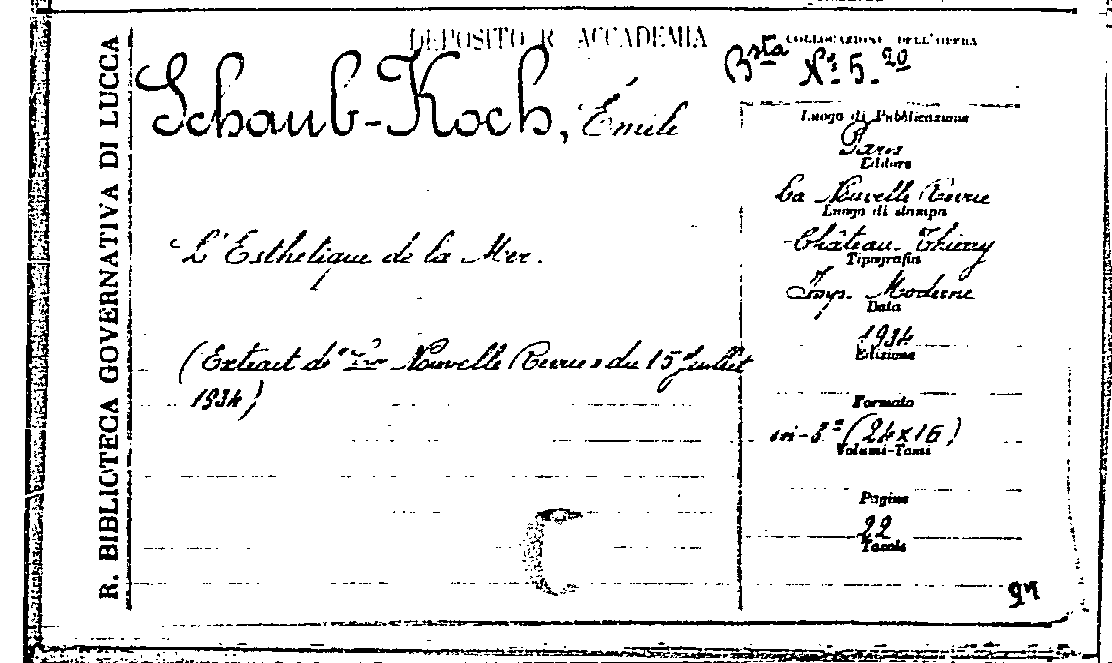 DEPOSITO R. ACCADEMIA
COLLOCAZIONE DELL'OPERA
Bsta No. 5.20
R. BIBLIOTECA GOVERNATIVA DI LUCCA
Schaub-Koch, Émile
L'Esthetique de la Mer.
(Extrait de "La Nouvelle Revue" du 15 Juillet
1934)
Luogo di Pubblicazione
Paris
Editore
La Nouvelle Revue
Luogo di stampa
Château-Thierry
Tipografia
Imp. Moderne
Data
1934
Edizione
Formato
in-8° (24x16)
Volumi-Tomi
Pagine
22
Tavole